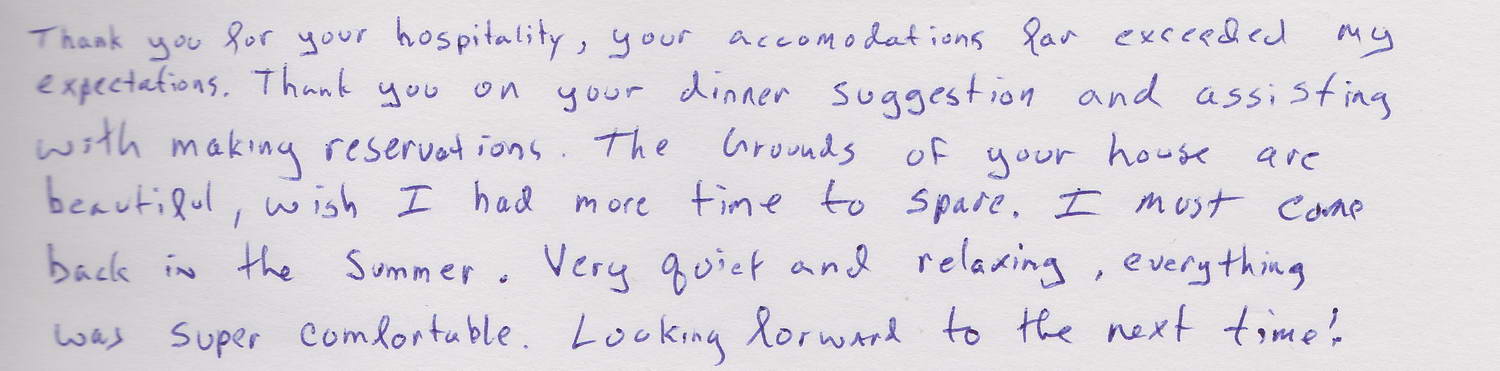 Thank you for your hospitality, your accomodations far exceeded my
expectations. Thank you on your dinner suggestion and assisting
with making reservations. The Grounds of your house are
beautiful, wish I had more time to spare. I must come
back in the Summer. Very quiet and relaxing, everything
was super comfortable. Looking forward to the next time!